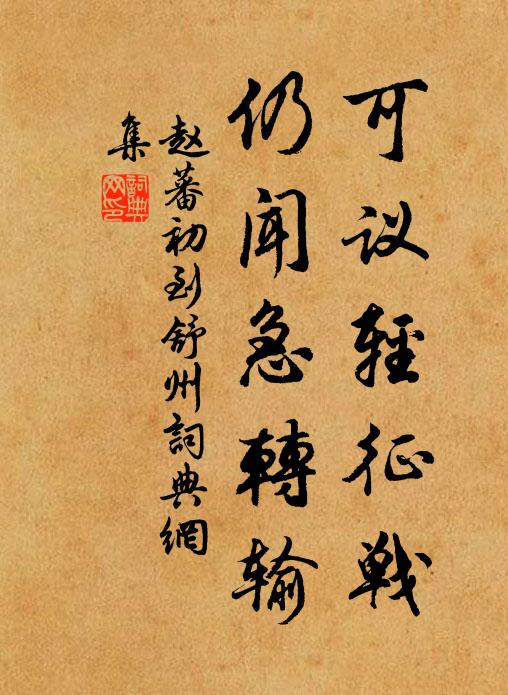 可议輕征戦
仍闻急轉输
赵蕃初到舒州詞典網
集
詞典
网印